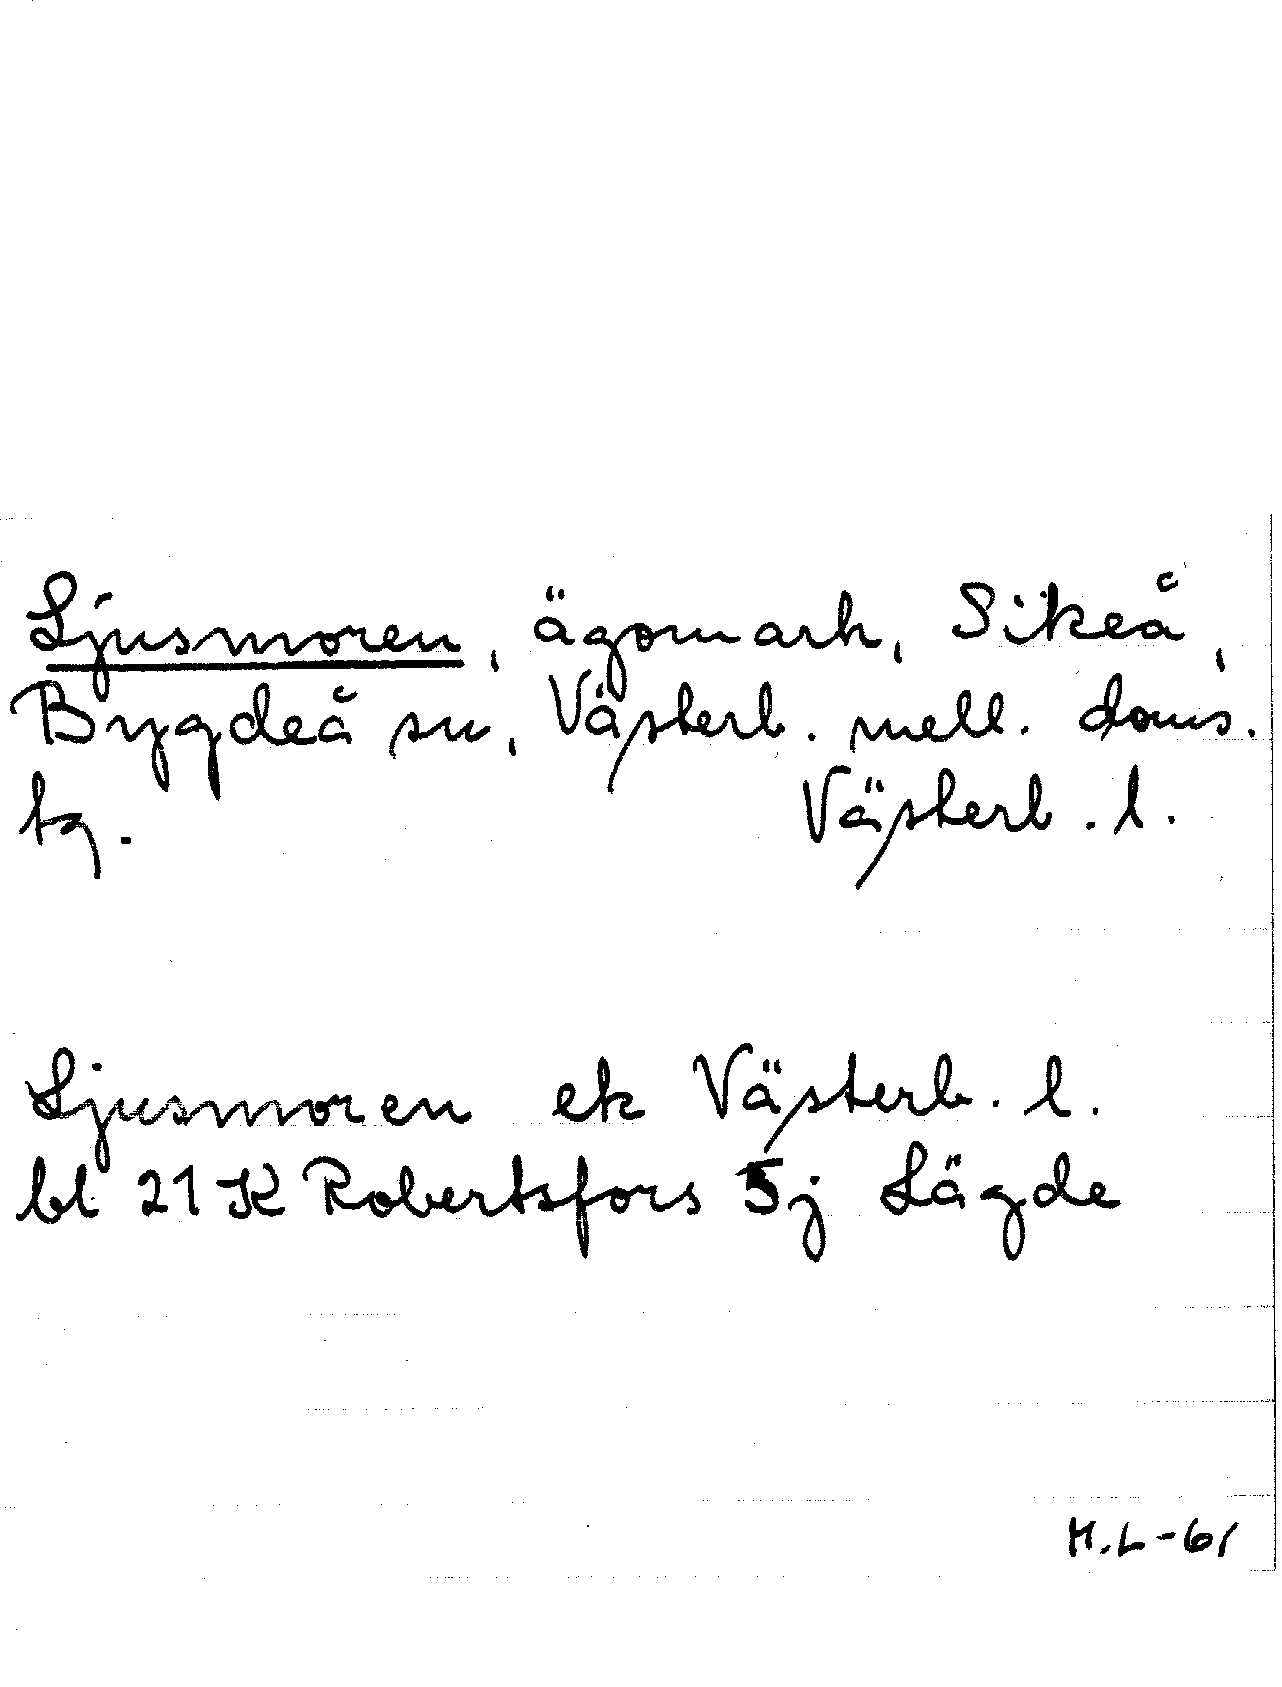 Ljusmoren, ägomark, Sikeå,
Bygdeå sn, Västerb. mell. doms.
tg. Västerb. l.
Ljusmoren ek Västerb. l.
bl 21 K Robertsfors 5j Lägde
M.L-61